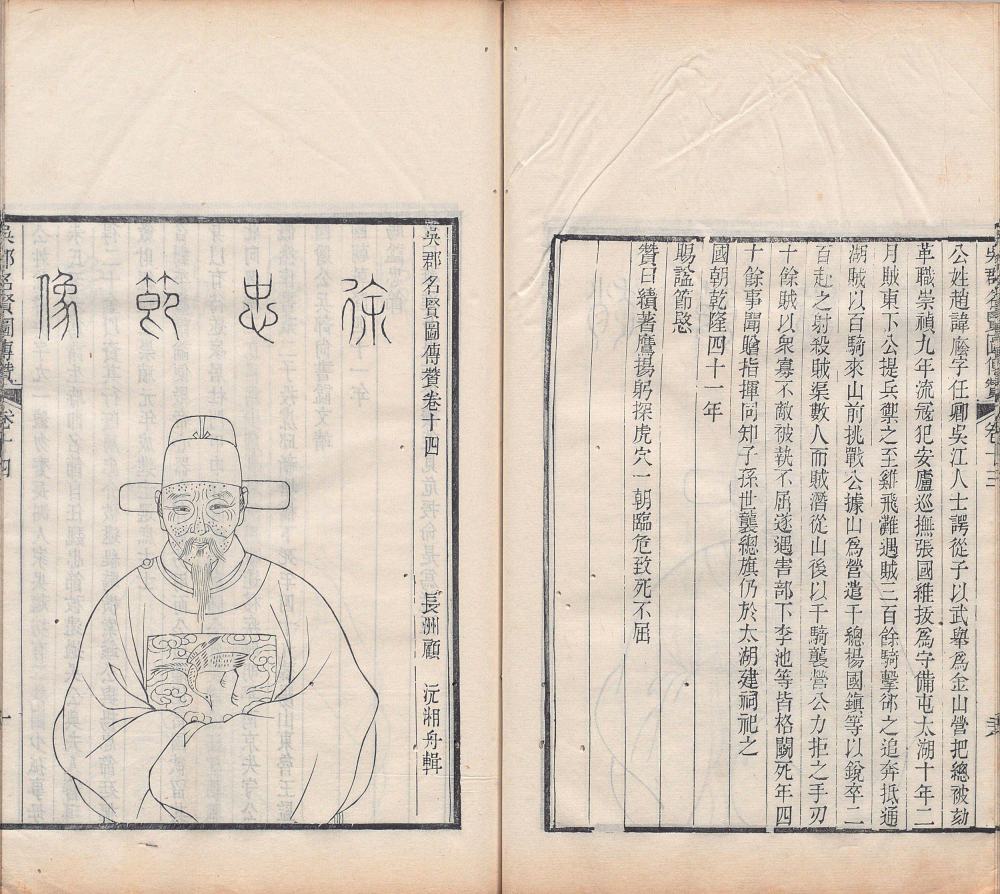 公姓趙諱廕字任卿吳江人士諤從子以武舉爲金山營把總被劾
革職崇禎九年流寇犯安廬巡撫張國維拔爲守備屯太湖十年二
月賊東下公提兵禦之至雞飛灘遇賊三百餘騎擊郤之追奔抵通
湖賊以百騎來山前挑戰公據山爲營遣千總楊國鎮等以銳卒二
百赴之射殺賊渠數人而賊潛從山後以千騎襲營公力拒之手刃
十餘賊以衆寡不敵被執不屈遂遇害部下李池等皆格鬭死年四
十餘事聞贈指揮同知子孫世襲總旗仍於太湖建祠祀之
國朝乾隆四十一年
賜諡節愍
贊曰續著鷹揚躬探虎穴一朝臨危致死不屈
吳郡名賢圖傳贊 卷十三
吳郡名賢圖傳贊卷十四
長洲顧 沅湘舟輯
徐忠節像
吳郡名賢圖傳贊 卷十四 一